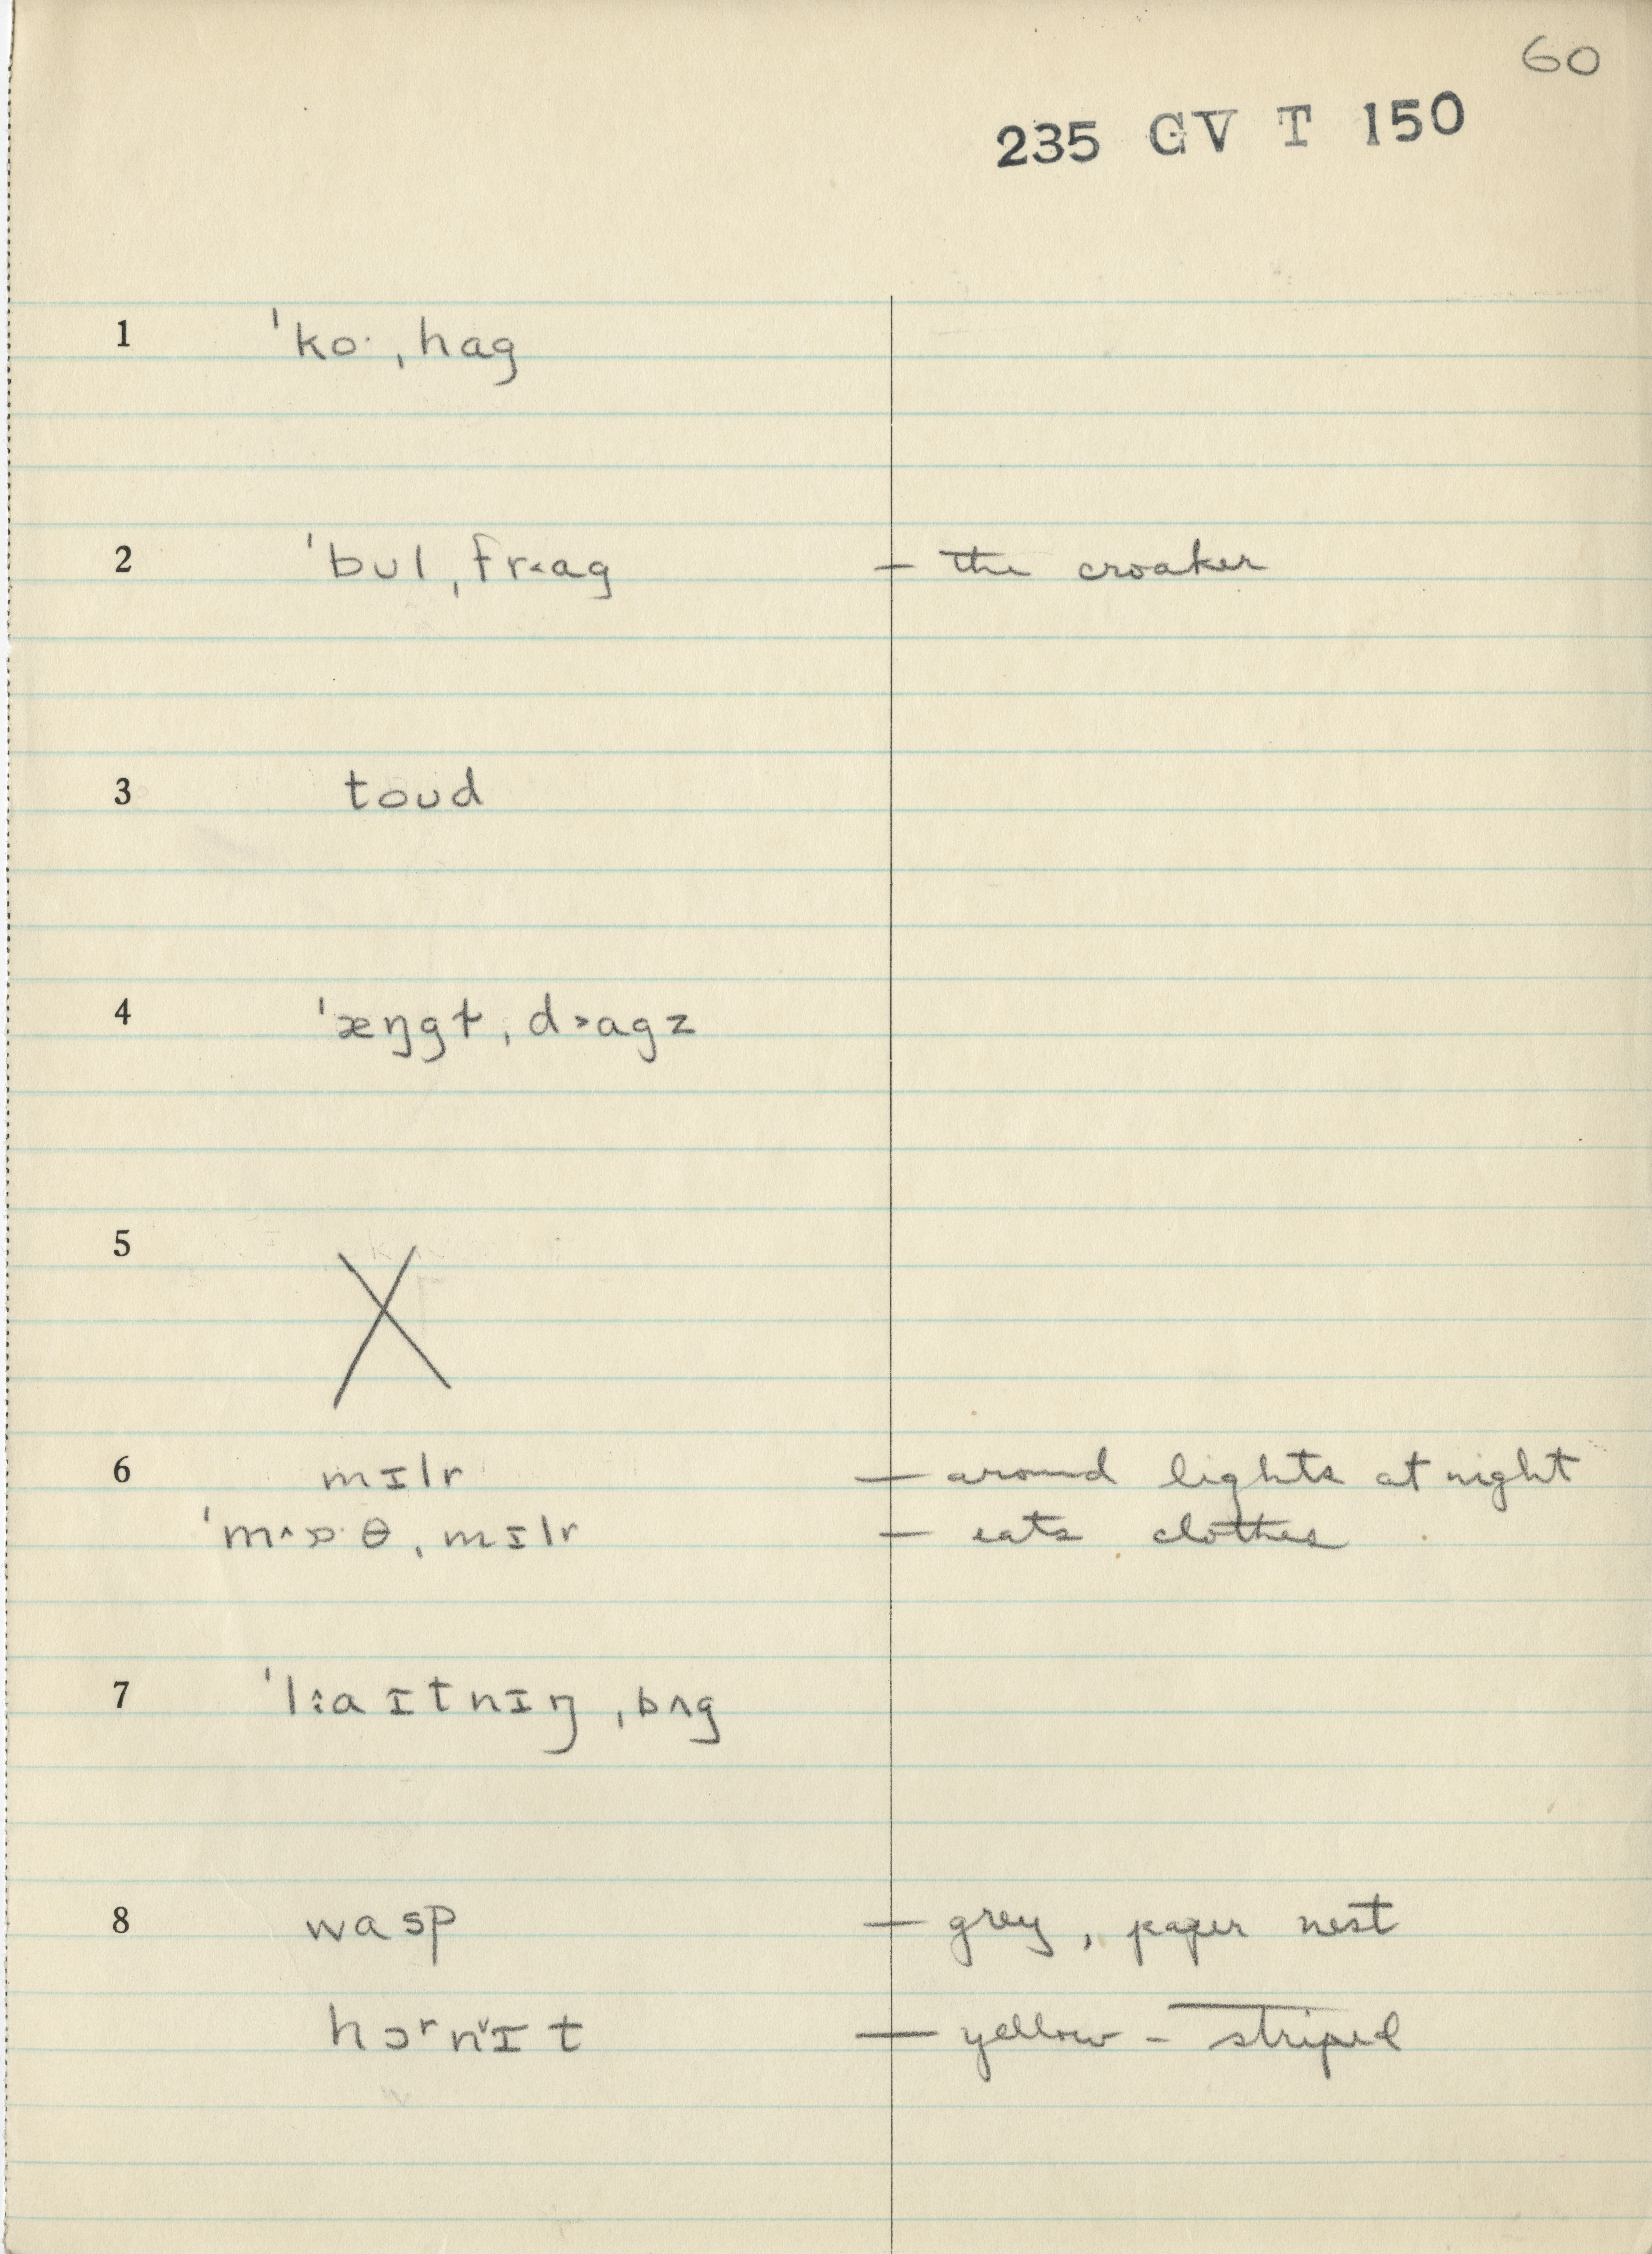 60
235 GV T 150
1 ˈko· ˌhag
2 ˈbʊl ˌfr˂ag — the croaker
3 toʊd
4 ˈæŋgɫ ˌd˃agz
5 X
6 mɪlr — around lights at night
ˈm^ɒ·θ ˌmɪlr — eats clothes
7 ˈl˔aɪtnɪŋ ˌbʌg
8 wasp — grey, paper nest
hɔʳnɪ˅t — yellow-striped